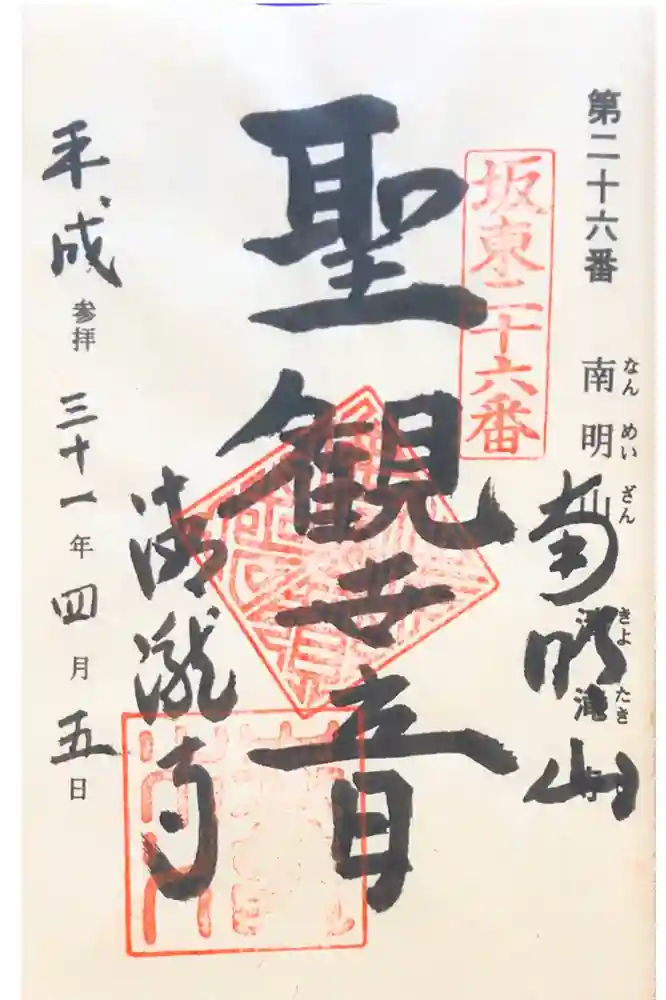 第二十六番
南明山
なんめいざん
きよたき
南明山
坂東二十六番
聖観世音
清瀧寺
平成参拝三十一年四月五日